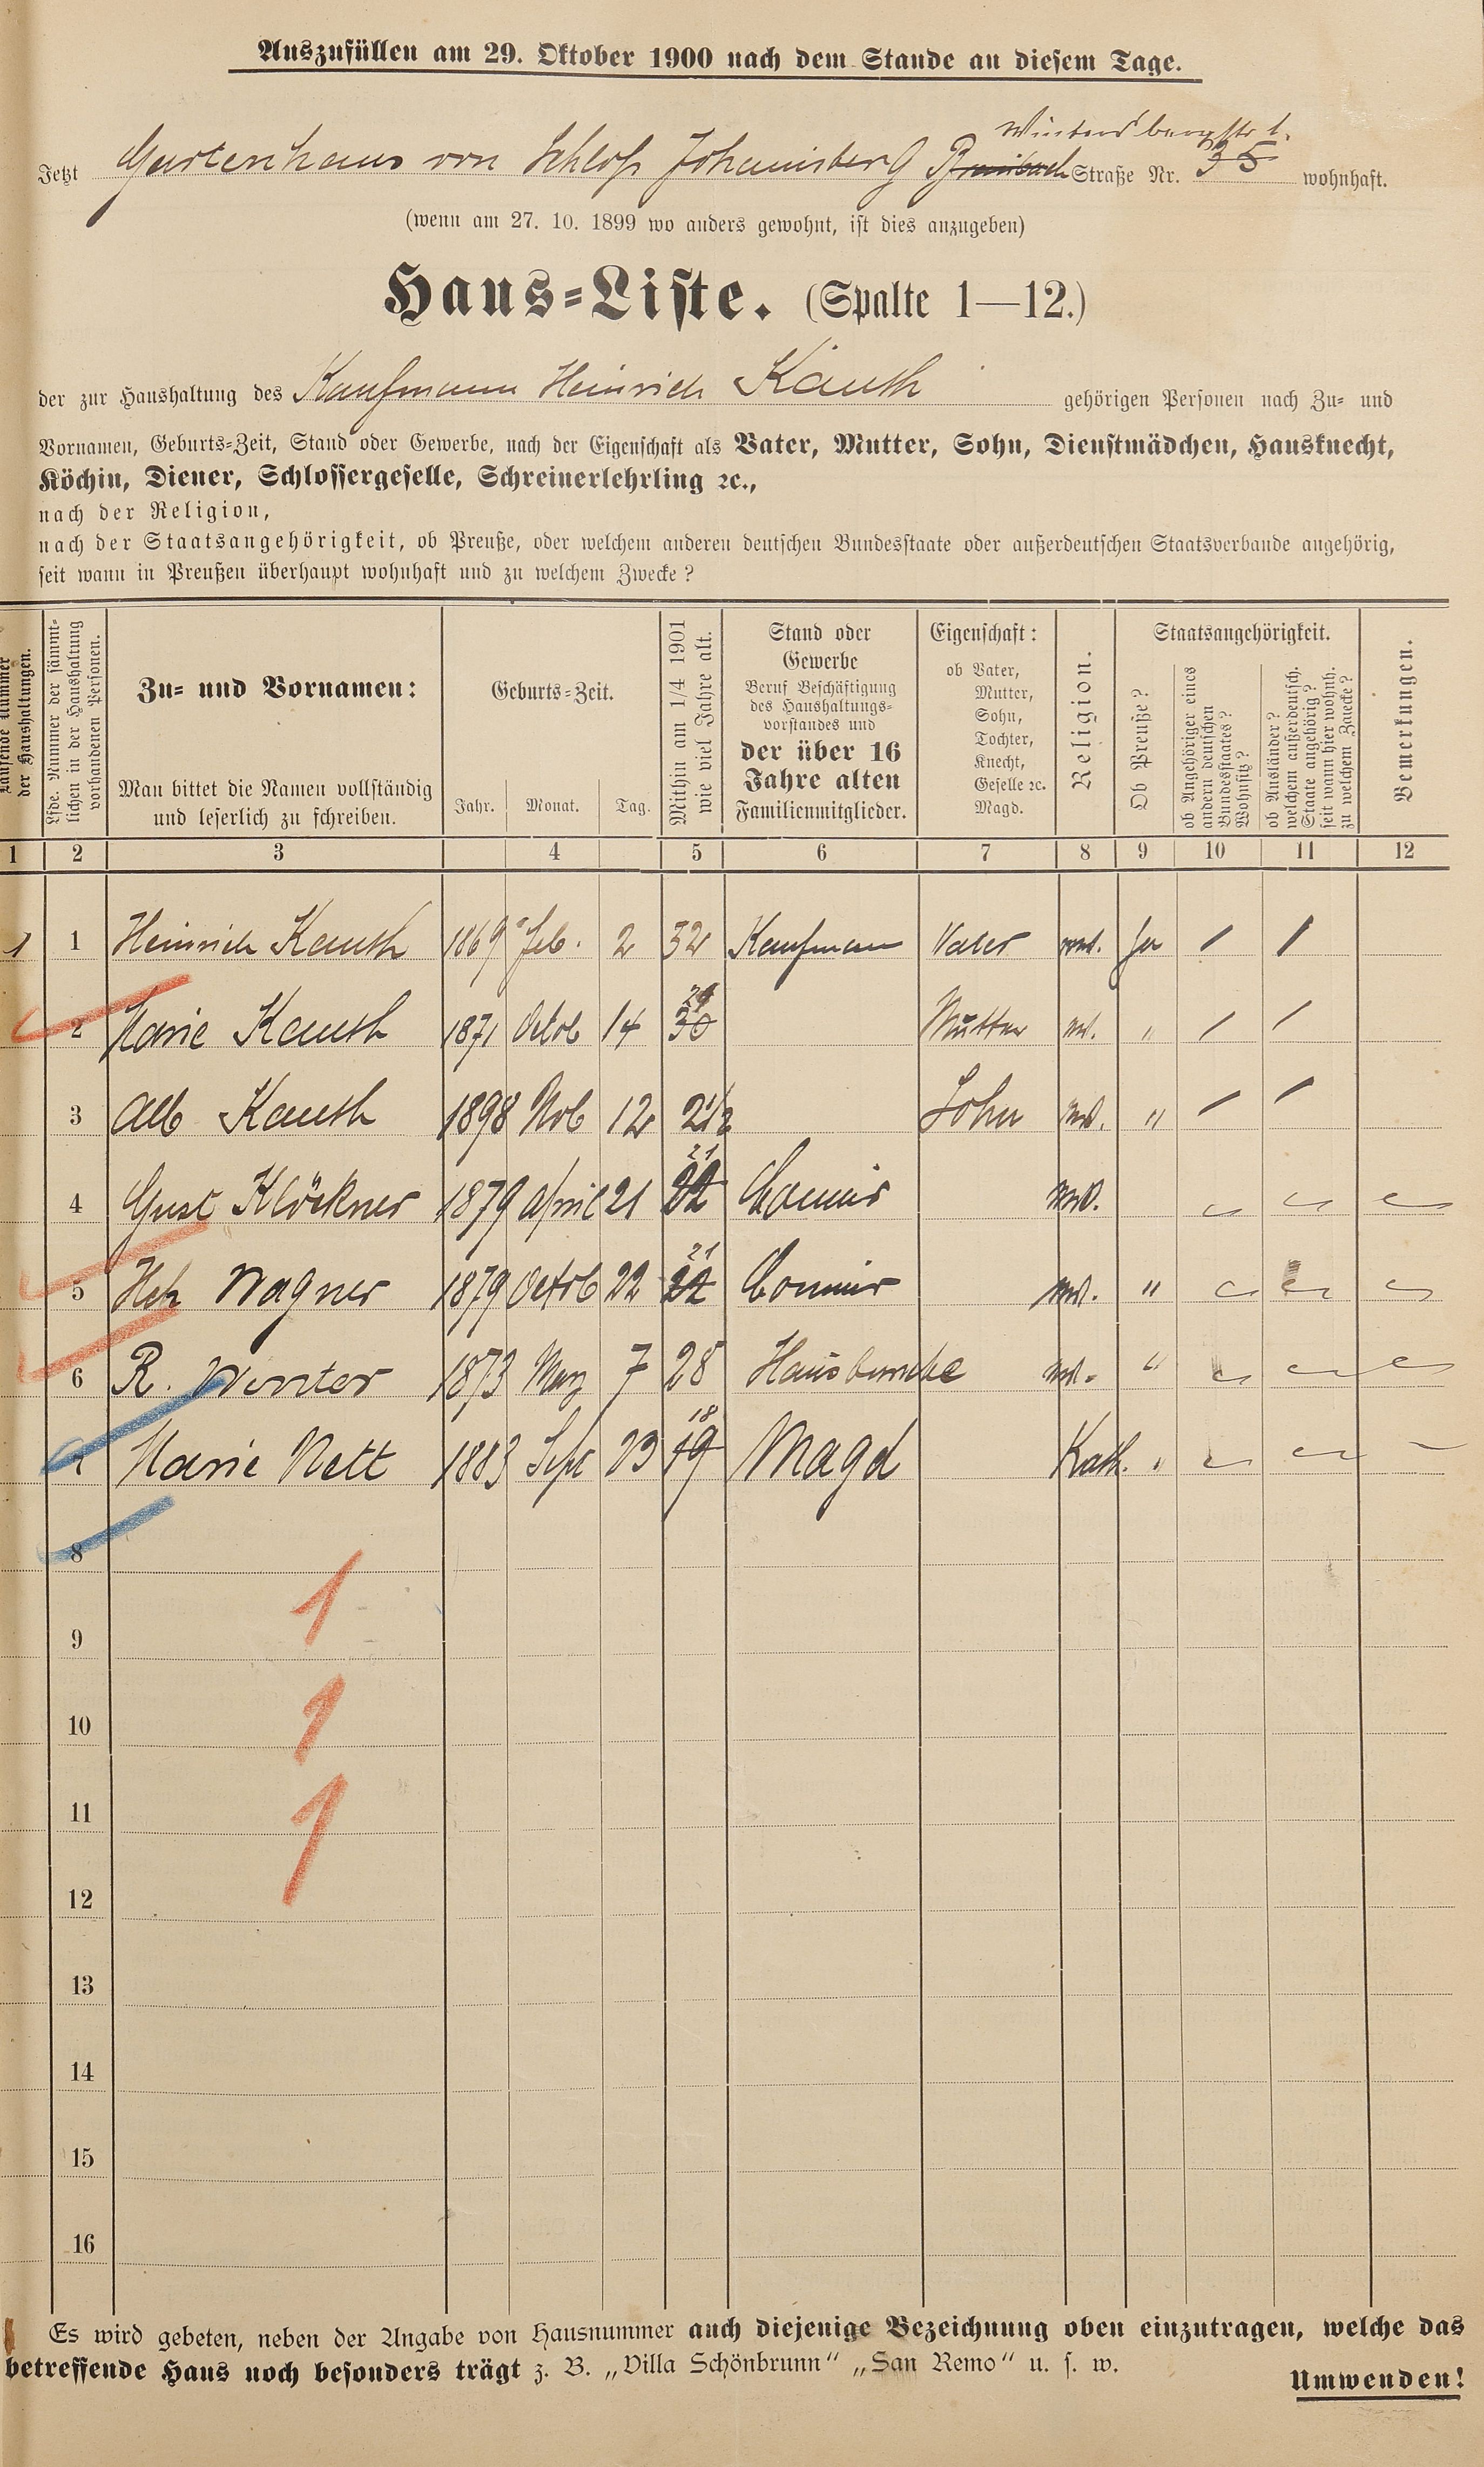 Auszufüllen am 29. Oktober 1900 nach dem Stande an diesem Tage.
Jetzt Gartenhaus von Schloß Johannisberg Straße Nr. 35 wohnhaft.
(wenn am 27. 10. 1899 wo anders gewohnt, ist dies anzugeben)
Haus-Liste. (Spalte 1—12.)
der zur Haushaltung des Kaufmann Heinrich Kauth gehörigen Personen nach Zu- und
Vornamen, Geburts-Zeit, Stand oder Gewerbe, nach der Eigenschaft als Vater, Mutter, Sohn, Dienstmädchen, Hausknecht,
Köchin, Diener, Schlossergeselle, Schreinerlehrling ꝛc.,
nach der Religion,
nach der Staatsangehörigkeit, ob Preuße, oder welchem anderen deutschen Bundesstaate oder außerdeutschen Staatsverbande angehörig,
seit wann in Preußen überhaupt wohnhaft und zu welchem Zwecke?
Laufende Nummer
der Haushaltungen.
Lfde. Nummer der sämmt-
lichen in der Haushaltung
vorhandenen Personen.
Zu- und Vornamen:
Man bittet die Namen vollständig
und leserlich zu schreiben.
Geburts-Zeit.
Jahr. Monat. Tag.
Mithin am 1/4 1901
wie viel Jahre alt.
Stand oder
Gewerbe
Beruf Beschäftigung
des Haushaltungs-
vorstandes und
der über 16
Jahre alten
Familienmitglieder.
Eigenschaft:
ob Vater,
Mutter,
Sohn,
Tochter,
Knecht,
Geselle ꝛc.
Magd.
Religion.
Staatsangehörigkeit.
Ob Preuße?
ob Angehöriger eines
andern deutschen
Bundesstaates?
Wohnsitz?
ob Ausländer?
welchem außerdeutsch.
Staate angehörig?
seit wann hier wohnh.
zu welchem Zwecke?
Bemerkungen.
1 2 3 4 5 6 7 8 9 10 11 12
1 1 Heinrich Kauth 1869 Feb. 2 32 Kaufmann Vater Ja / /
2 Marie Kauth 1871 Octob 14 29 30 Mutter " / /
3 Alb Kauth 1898 Nob 12 2 1/2 Sohn " / /
4 Gust Klöckner 1879 April 21 21 22 Commis
5 Hch Wagner 1879 Octob 22 21 22 Commis "
6 R. Winter 1873 May 7 28 Hausbursche "
7 Marie Nett 1883 Sept 23 18 19 Magd Kath. "
8
1
9
10
1
11
1
12
13
14
15
16
Es wird gebeten, neben der Angabe von Hausnummer auch diejenige Bezeichnung oben einzutragen, welche das
betreffende Haus noch besonders trägt z. B. „Villa Schönbrunn“ „San Remo“ u. s. w.
Umwenden!